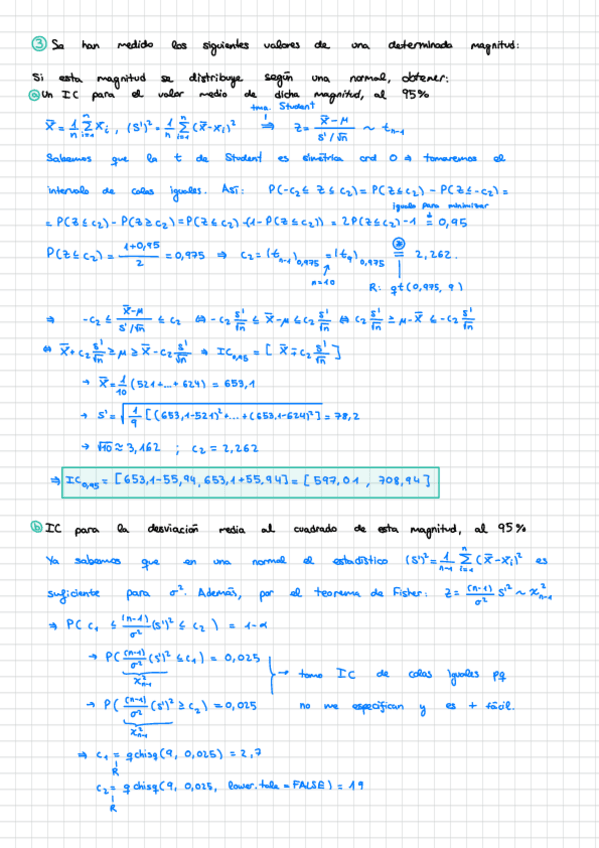 ③ Se han medido los siguientes valores de una determinada magnitud:
Si esta magnitud se distribuye según una normal, obtener:
ⓐ Un IC para el valor medio de dicha magnitud, al 95%
tma. Student
X̄ = 1/n Σ_{i=1}^n X_i , (S')² = 1/n Σ_{i=1}^n (X̄-X_i)² ⇒ Z = (X̄-μ)/(S'/√n) ~ t_{n-1}
Sabemos que la t de Student es simétrica crd 0 ⇒ tomaremos el
intervalo de colas iguales. Así: P(-c₂ ≤ Z ≤ c₂) = P(Z ≤ c₂) - P(Z ≤ -c₂) =
igualo para minimizar
= P(Z ≤ c₂) - P(Z ≥ c₂) = P(Z ≤ c₂) - (1 - P(Z ≤ c₂)) = 2P(Z ≤ c₂) - 1 = 0,95
P(Z ≤ c₂) = (1+0,95)/2 = 0,975 ⇒ c₂ = (t_{n-1})_{0,975} = (t_9)_{0,975} = 2,262.
n=10
R: qt(0,975, 9)
⇒ -c₂ ≤ (X̄-μ)/(S'/√n) ≤ c₂ ⇔ -c₂ S'/√n ≤ X̄-μ ≤ c₂ S'/√n ⇔ c₂ S'/√n ≥ μ-X̄ ≥ -c₂ S'/√n
⇔ X̄+c₂ S'/√n ≥ μ ≥ X̄-c₂ S'/√n ⇒ IC_{0,95} = [ X̄ ∓ c₂ S'/√n ]
→ X̄ = 1/10 (521+...+624) = 653,1
→ S' = √(1/9 [(653,1-521)²+...+(653,1-624)²]) = 78,2
→ √10 ≈ 3,162 ; c₂ = 2,262
⇒ IC_{0,95} = [653,1-55,94, 653,1+55,94] = [597,01 , 708,94]
ⓑ IC para la desviación media al cuadrado de esta magnitud, al 95%
Ya sabemos que en una normal el estadístico (S')² = 1/(n-1) Σ_{i=1}^n (X̄-X_i)² es
suficiente para σ². Además, por el teorema de Fisher: Z = (n-1)/σ² S'² ~ χ²_{n-1}
⇒ P( c₁ ≤ (n-1)/σ² (S')² ≤ c₂ ) = 1-α
→ P( (n-1)/σ² (S')² ≤ c₁ ) = 0,025
χ²_{n-1}
→ tomo IC de colas iguales pq
→ P( (n-1)/σ² (S')² ≥ c₂ ) = 0,025
no me especifican y es + fácil.
χ²_{n-1}
⇒ c₁ = qchisq(9, 0,025) = 2,7
R
c₂ = qchisq(9, 0,025, lower.tale = FALSE) = 19
R